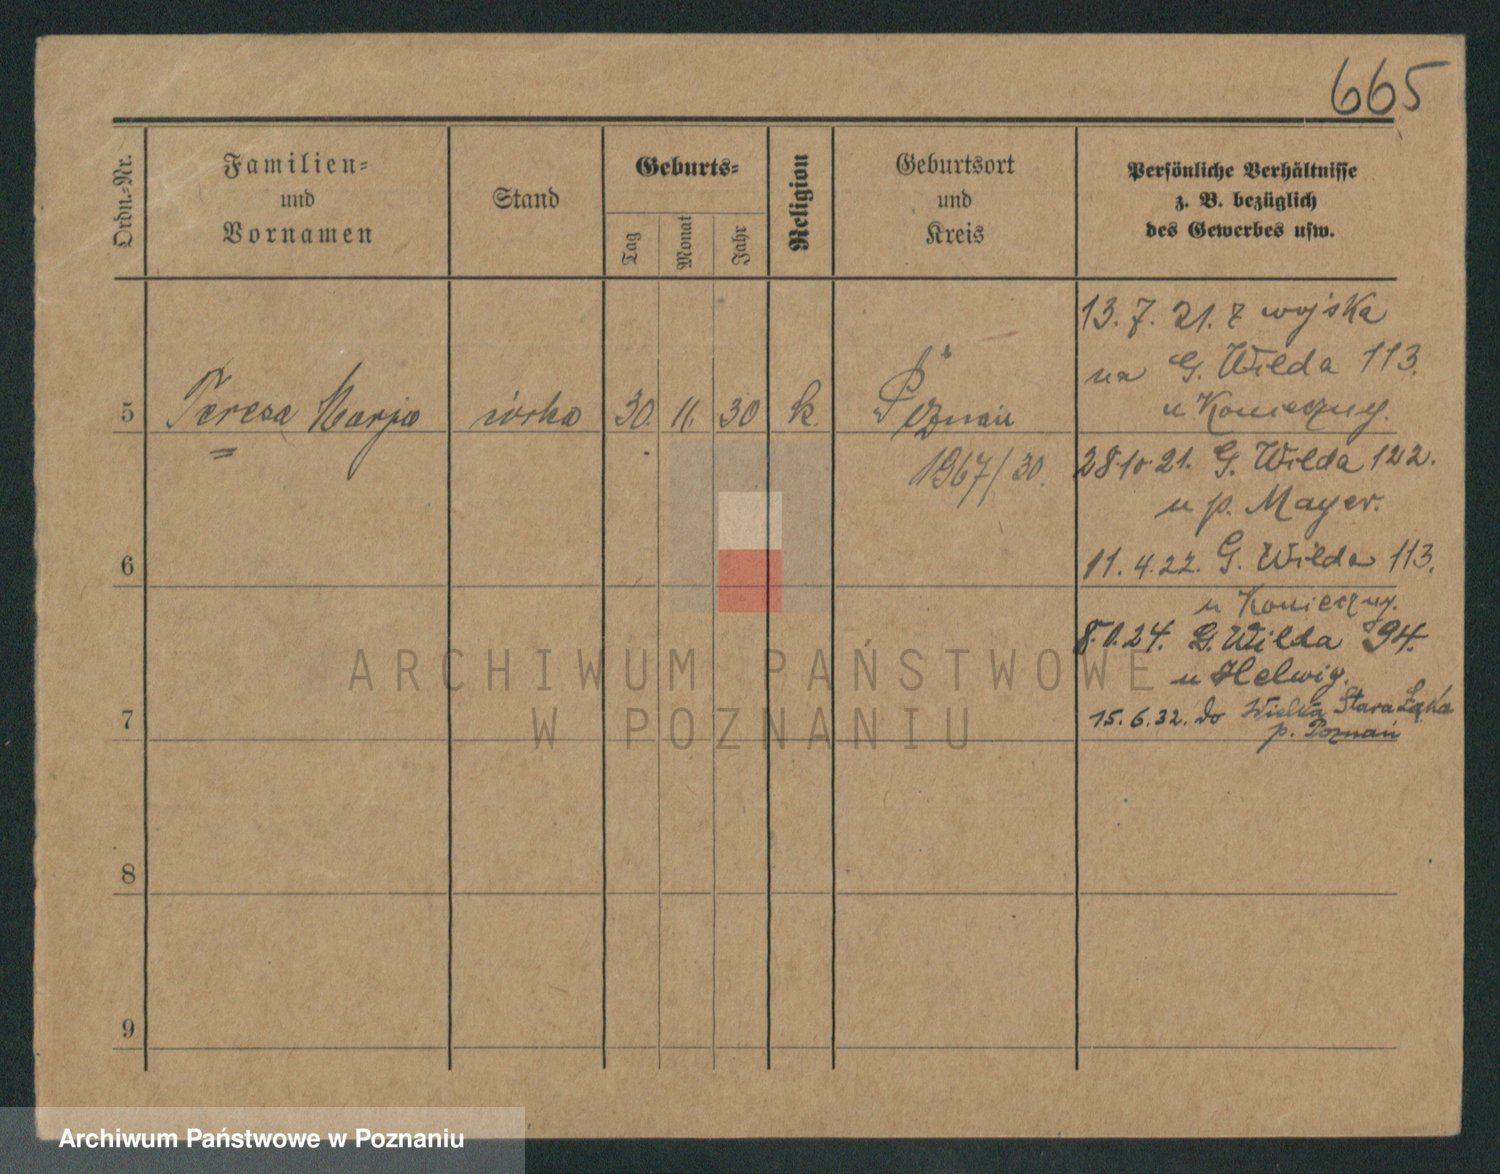 665
Ordn.-Nr.
Familien-
und
Vornamen
Stand
Geburts-
Tag
Monat
Jahr
Religion
Geburtsort
und
Kreis
Persönliche Verhältnisse
z. B. bezüglich
des Gewerbes usw.
13. 7. 21. z wojska
na G. Wilda 113.
u Konieczny.
5 Teresa Marja córka 30. 11. 30 k. Poznań
1967/30.
28 10 21. G. Wilda 122.
u p. Mayer.
6
11. 4. 22. G. Wilda 113.
u Konieczny.
G. Wilda 94.
u Helwig.
7
15. 6. 32. do Wielka Stara Łąka
p. Poznań
8
9
ARCHIWUM PAŃSTWOWE
W POZNANIU
Archiwum Państwowe w Poznaniu